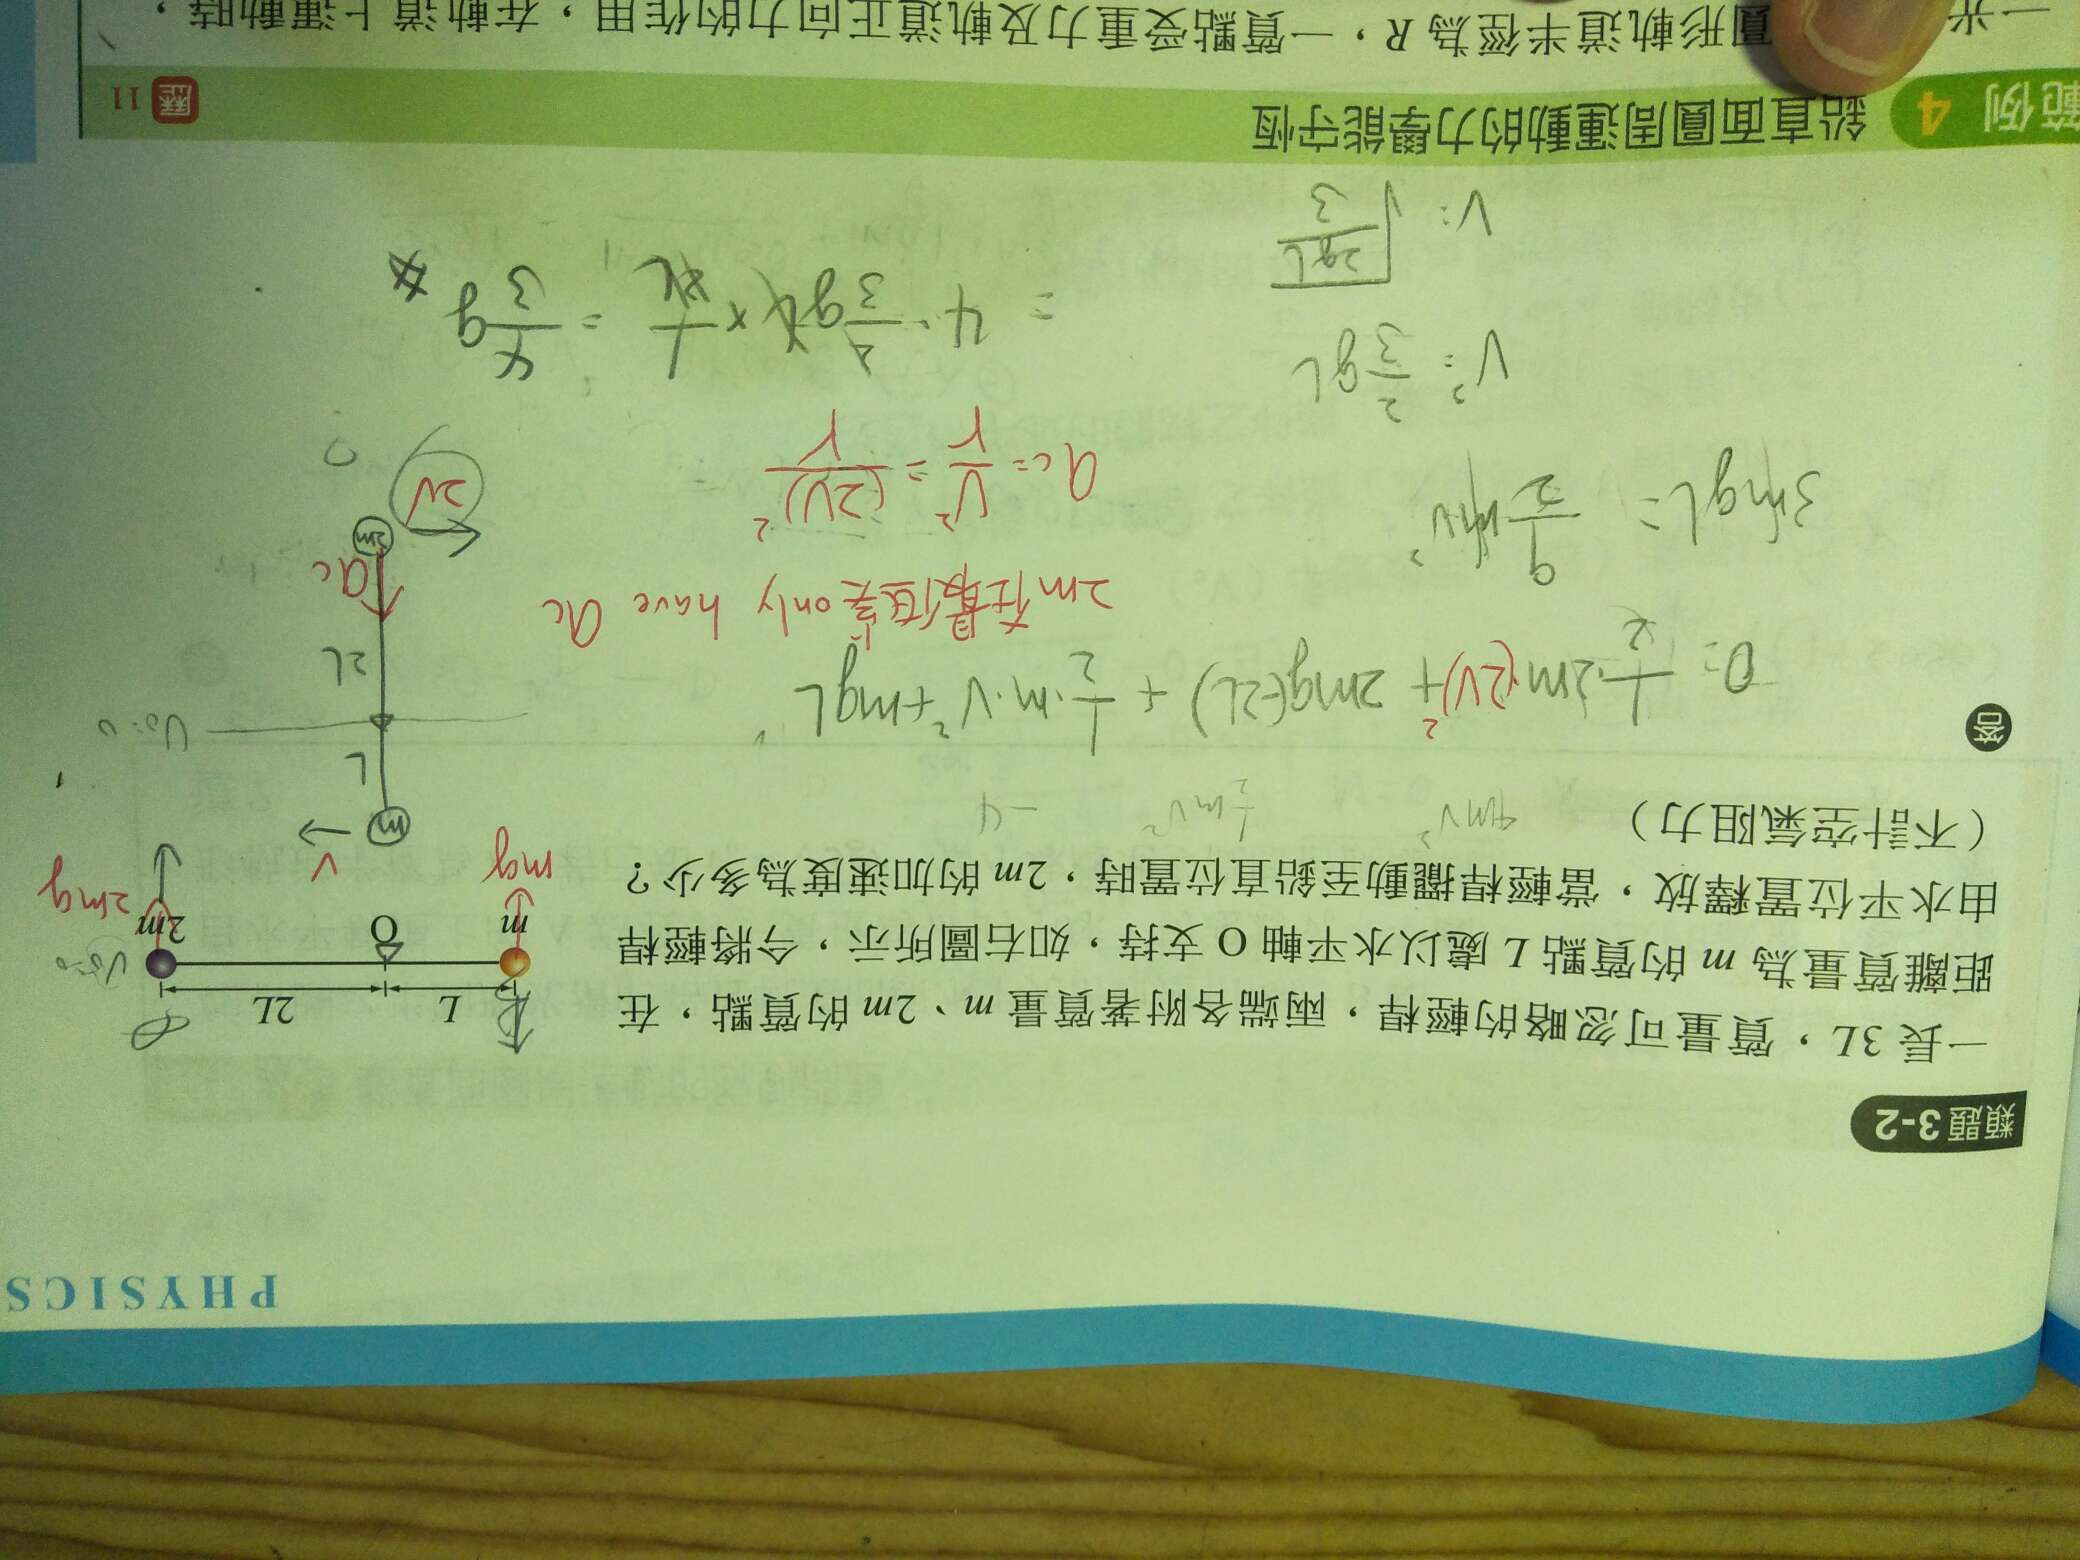 PHYSICS
類題3-2
一長 3L,質量可忽略的輕桿,兩端各附著質量 m、2m 的質點,在
距離質量為 m 的質點 L 處以水平軸 O 支持,如右圖所示,今將輕桿
由水平位置釋放,當輕桿擺動至鉛直位置時,2m 的加速度為多少?
(不計空氣阻力)
L
2L
m
O
2m
mg
2mg
U₀=0
4mv²
½mv²
-4
答
0= ½·2m·(2V)²+ 2mg(-2L) + ½·m·V²+mgL
2m在最低點only have ac
3mgL = 9/2 mv²
ac= V²/r = (2V)²/r
V²= 2/3 gL
V= √(2gL/3)
= 4·2/3 gL × 1/2L = 4/3 g #
m
V
L
U₀=0
2L
ac
2m
2V
範例 4 鉛直面圓周運動的力學能守恆
歷 11
一光
圓形軌道半徑為 R,一質點受重力及軌道正向力的作用,在軌道上運動時,